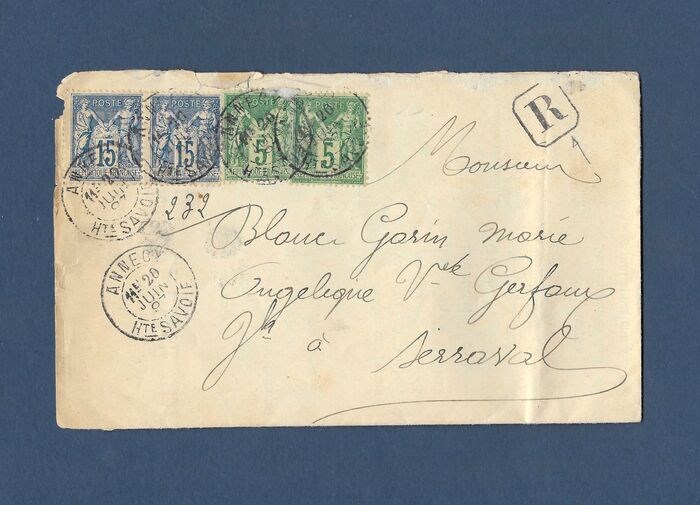 POSTE POSTE POSTE POSTE
15 15 5 5
R
ANNECY
20
JUIN
HTE SAVOIE
232
Monsieur
Blanc Garin Marie
Angelique Vve Gerfaux
Jh à Serraval
ANNECY
11E
20
JUIN
HTE SAVOIE